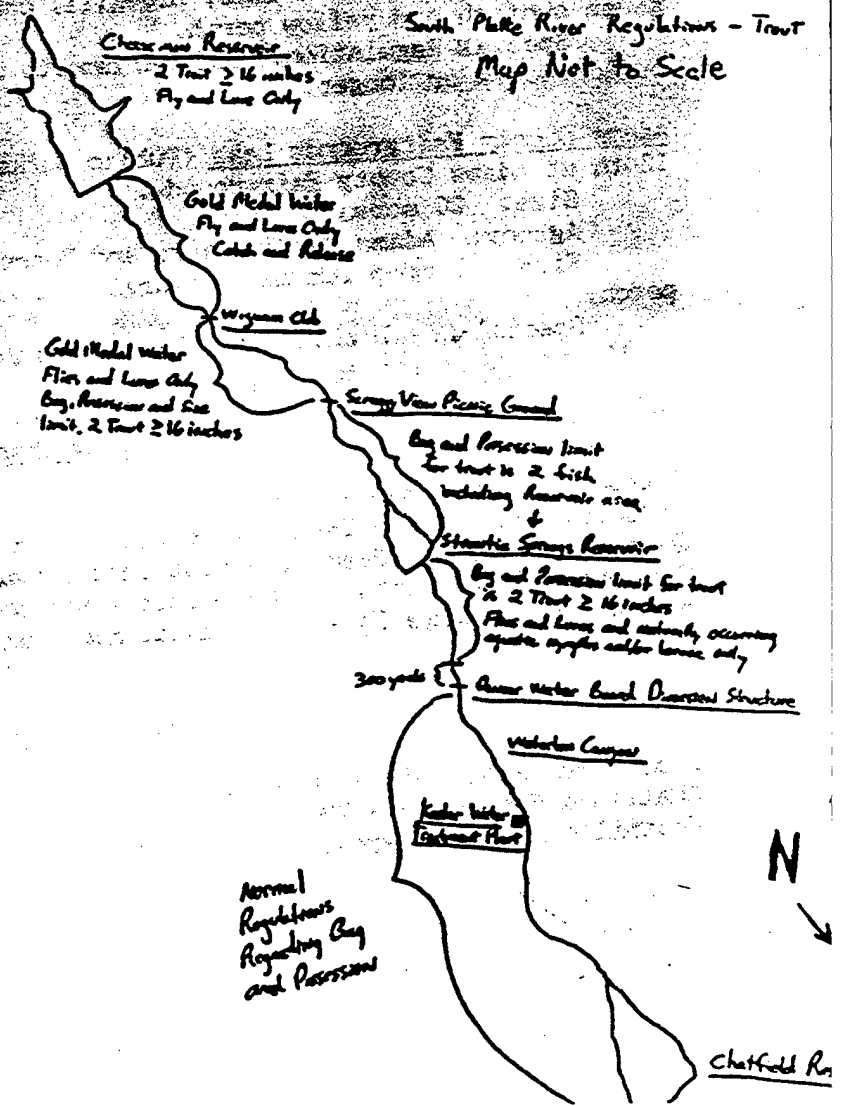 South Platte River Regulations - Trout
Map Not to Scale
Cheesman Reservoir
2 Trout ≥ 16 inches
Fly and Lure Only
Gold Medal Water
Fly and Lures Only
Catch and Release
Wigwam Club
Gold Medal Water
Flies and Lures Only
Bag, Possession and Size
limit, 2 Trout ≥ 16 inches
Scraggy View Picnic Ground
Bag and Possession limit
for trout is 2 fish
including Reservoir area
Strontia Springs Reservoir
Bag and Possession limit for trout
is 2 Trout ≥ 16 inches
Flies and Lures and naturally occurring
aquatic nymphs and/or larvae only
300 yards
Water Board Diversion Structure
Waterton Canyon
Water
Treatment Plant
N
Normal
Regulations
Regarding Bag
and Possession
Chatfield Res